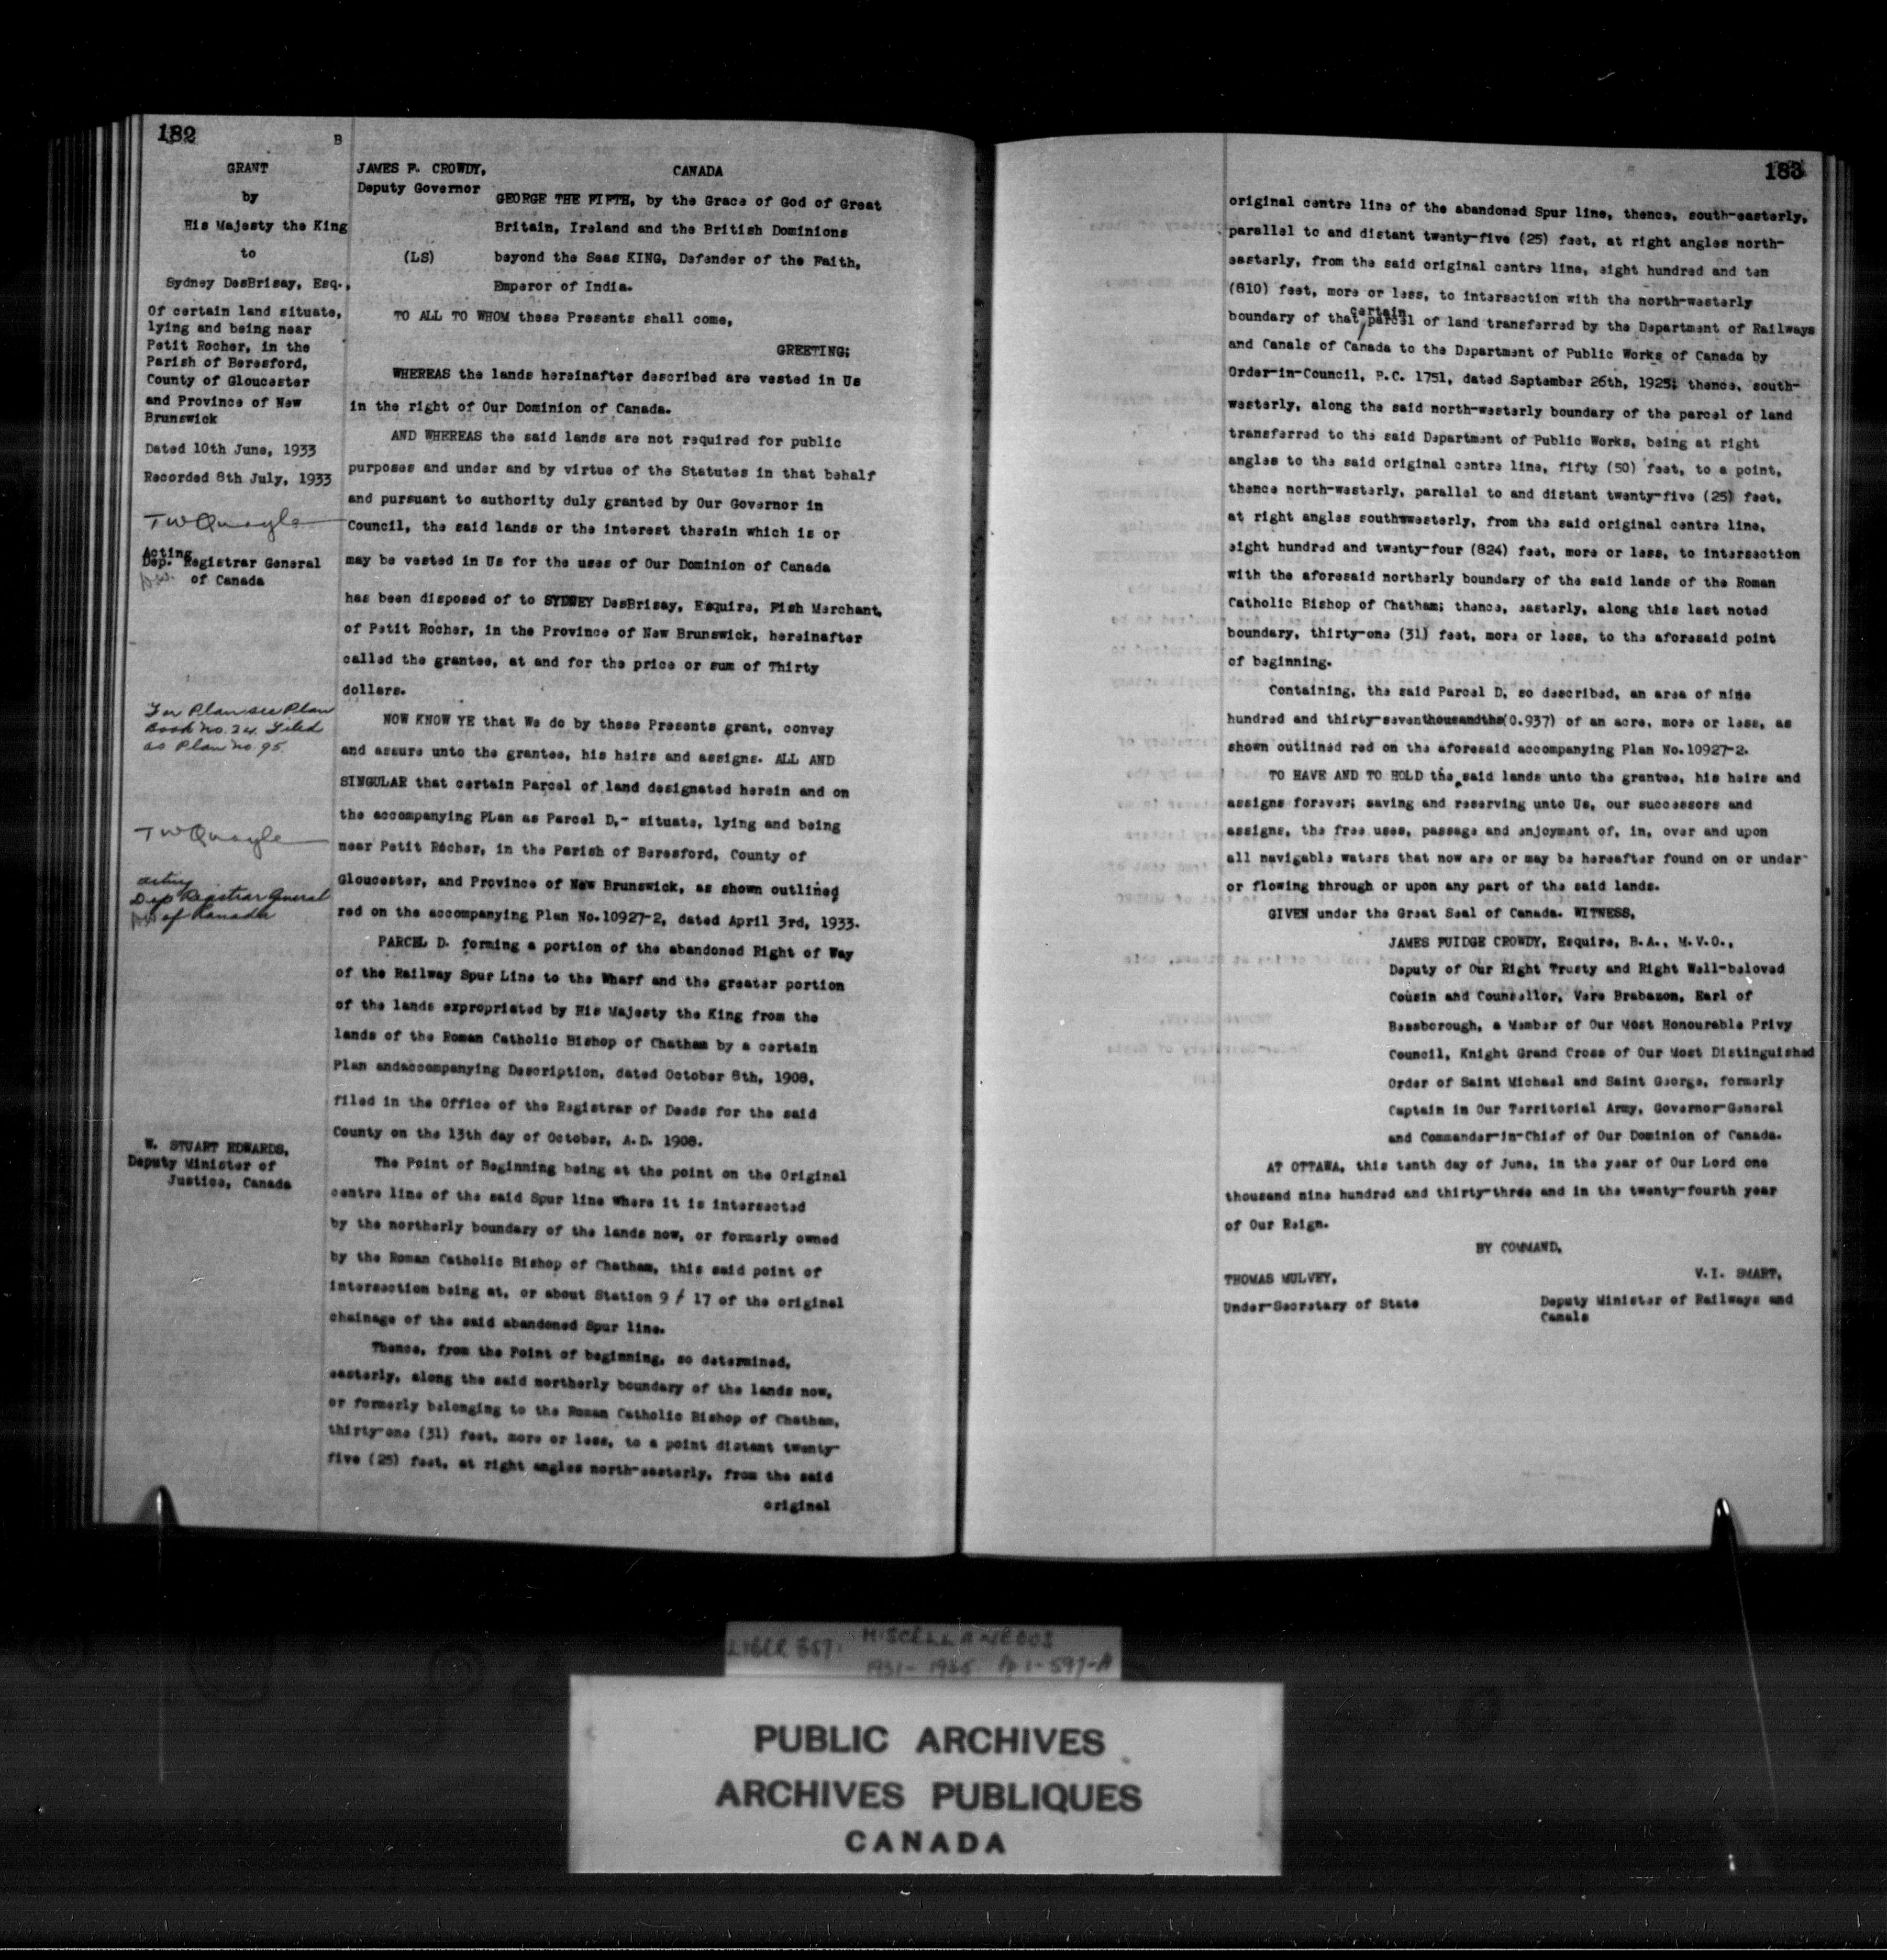 182
B
GRANT
by
His Majesty the King
to
Sydney DesBrisay, Esq.,
Of certain land situate,
lying and being near
Petit Rocher, in the
Parish of Beresford,
County of Gloucester
and Province of New
Brunswick
Dated 10th June, 1933
Recorded 8th July, 1933
TWQuayle
Acting
Dep. Registrar General
of Canada
For Plan see Plan
Book No. 24 Filed
as Plan No. 95
TWQuayle
Acting
Dep Registrar General
of Canada
W. STUART EDWARDS,
Deputy Minister of
Justice, Canada
JAMES F. CROWDY,
Deputy Governor
CANADA
GEORGE THE FIFTH, by the Grace of God of Great
Britain, Ireland and the British Dominions
(LS) beyond the Seas KING, Defender of the Faith,
Emperor of India.
TO ALL TO WHOM these Presents shall come,
GREETING;
WHEREAS the lands hereinafter described are vested in Us
in the right of Our Dominion of Canada.
AND WHEREAS the said lands are not required for public
purposes and under and by virtue of the Statutes in that behalf
and pursuant to authority duly granted by Our Governor in
Council, the said lands or the interest therein which is or
may be vested in Us for the uses of Our Dominion of Canada
has been disposed of to SYDNEY DesBrisay, Esquire, Fish Merchant,
of Petit Rocher, in the Province of New Brunswick, hereinafter
called the grantee, at and for the price or sum of Thirty
dollars.
NOW KNOW YE that We do by these Presents grant, convey
and assure unto the grantee, his heirs and assigns. ALL AND
SINGULAR that certain Parcel of land designated herein and on
the accompanying PLan as Parcel D,- situate, lying and being
near Petit Rocher, in the Parish of Beresford, County of
Gloucester, and Province of New Brunswick, as shown outlined
red on the accompanying Plan No.10927-2, dated April 3rd, 1933.
PARCEL D. forming a portion of the abandoned Right of Way
of the Railway Spur Line to the Wharf and the greater portion
of the lands expropriated by His Majesty the King from the
lands of the Roman Catholic Bishop of Chatham by a certain
Plan andaccompanying Description, dated October 8th, 1908,
filed in the Office of the Registrar of Deeds for the said
County on the 13th day of October, A.D. 1908.
The Point of Beginning being at the point on the Original
centre line of the said Spur line where it is intersected
by the northerly boundary of the lands now, or formerly owned
by the Roman Catholic Bishop of Chatham, this said point of
intersection being at, or about Station 9 / 17 of the original
chainage of the said abandoned Spur line.
Thence, from the Point of beginning, so determined,
easterly, along the said northerly boundary of the lands now,
or formerly belonging to the Roman Catholic Bishop of Chatham,
thirty-one (31) feet, more or less, to a point distant twenty-
five (25) feet, at right angles north-easterly, from the said
original
183
original centre line of the abandoned Spur line, thence, south-easterly,
parallel to and distant twenty-five (25) feet, at right angles north-
easterly, from the said original centre line, eight hundred and ten
(810) feet, more or less, to intersection with the north-westerly
boundary of that certain parcel of land transferred by the Department of Railways
and Canals of Canada to the Department of Public Works of Canada by
Order-in-Council, P.C. 1751, dated September 26th, 1925; thence, south-
westerly, along the said north-westerly boundary of the parcel of land
transferred to the said Department of Public Works, being at right
angles to the said original centre line, fifty (50) feet, to a point,
thence north-westerly, parallel to and distant twenty-five (25) feet,
at right angles southwwesterly, from the said original centre line,
eight hundred and twenty-four (824) feet, more or less, to intersection
with the aforesaid northerly boundary of the said lands of the Roman
Catholic Bishop of Chatham; thence, easterly, along this last noted
boundary, thirty-one (31) feet, more or less, to the aforesaid point
of beginning.
Containing, the said Parcel D, so described, an area of nine
hundred and thirty-seventhousandths(0.937) of an acre, more or less, as
shown outlined red on the aforesaid accompanying Plan No.10927-2.
TO HAVE AND TO HOLD the said lands unto the grantee, his heirs and
assigns forever; saving and reserving unto Us, our successors and
assigns, the free uses, passage and enjoyment of, in, over and upon
all navigable waters that now are or may be hereafter found on or under-
or flowing through or upon any part of the said lands.
GIVEN under the Great Seal of Canada. WITNESS,
JAMES FUIDGE CROWDY, Esquire, B.A., M.V.O.,
Deputy of Our Right Trusty and Right Well-beloved
Cousin and Counsellor, Vere Brabazon, Earl of
Bessborough, a Member of Our Most Honourable Privy
Council, Knight Grand Cross of Our Most Distinguished
Order of Saint Michael and Saint George, formerly
Captain in Our Territorial Army, Governor-General
and Commander-in-Chief of Our Dominion of Canada.
AT OTTAWA, this tenth day of June, in the year of Our Lord one
thousand nine hundred and thirty-three and in the twenty-fourth year
of Our Reign.
BY COMMAND,
THOMAS MULVEY,
Under-Secretary of State
V.I. SMART,
Deputy Minister of Railways and
Canals
LIBER 367. MISCELLANEOUS
1931-1935 Pp 1-597-A
PUBLIC ARCHIVES
ARCHIVES PUBLIQUES
CANADA